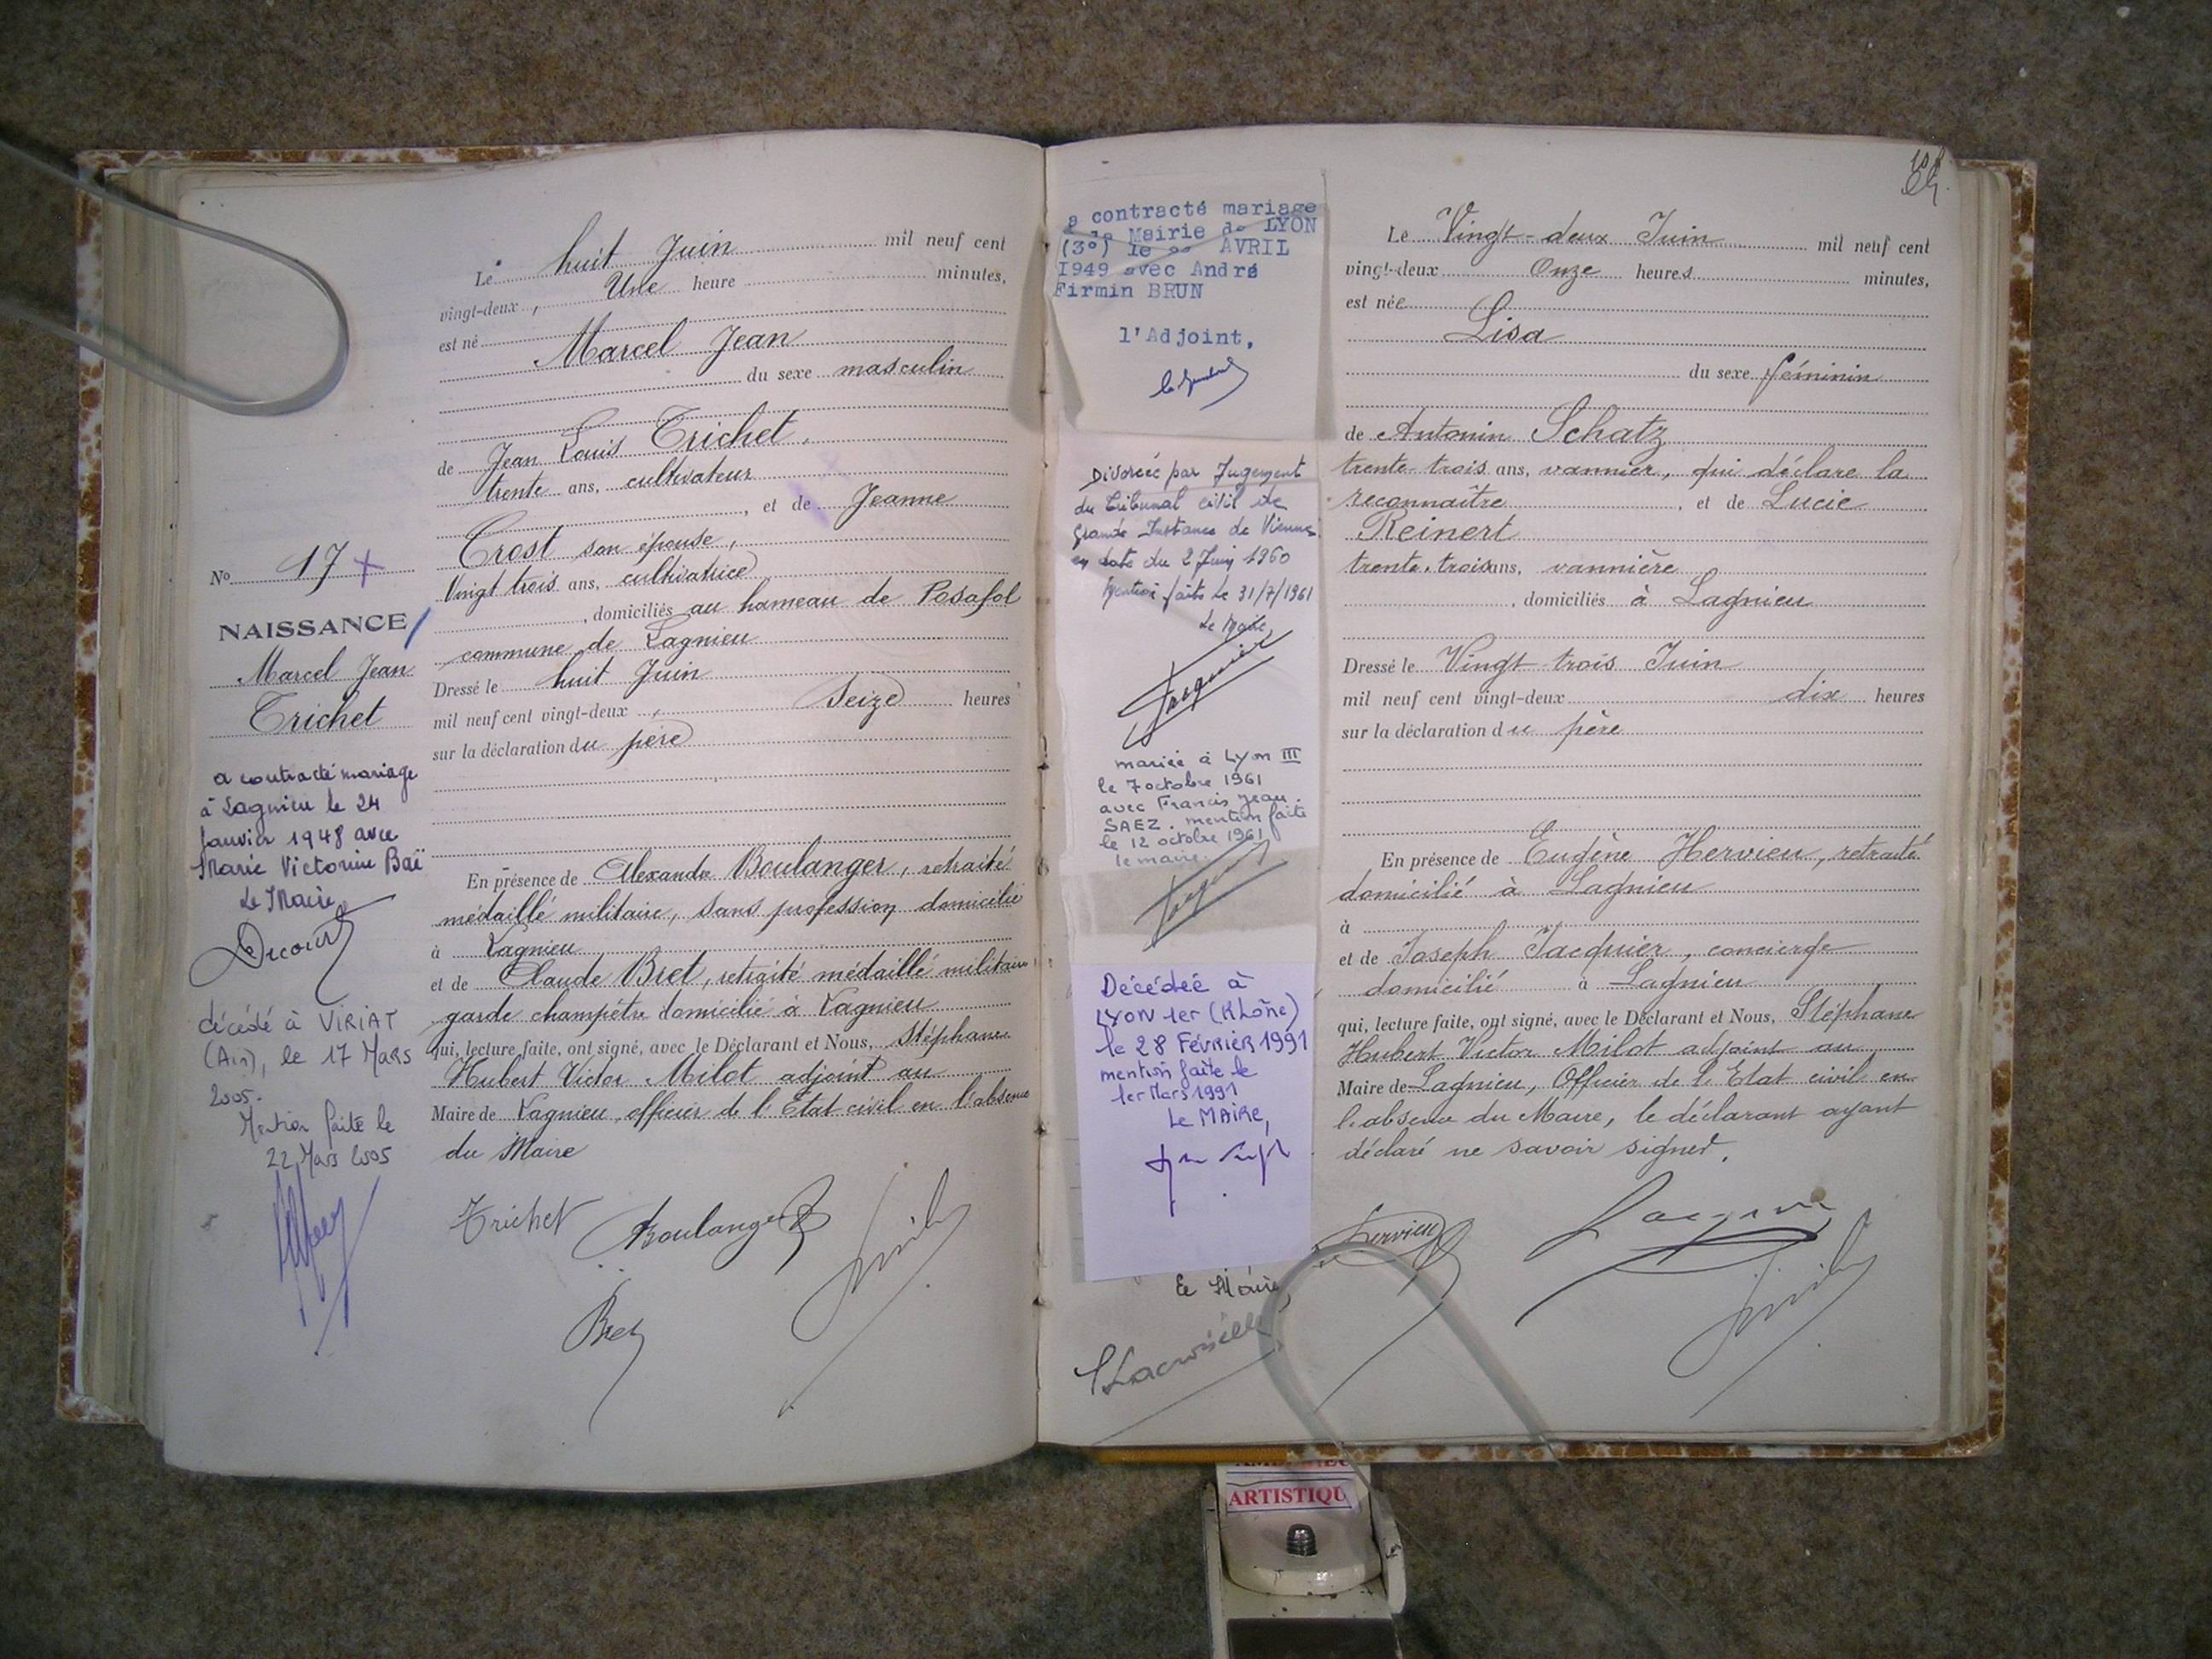 Le huit Juin mil neuf cent
vingt-deux, Une heure minutes,
est né
Marcel Jean
du sexe masculin
de Jean Louis Trichet,
trente ans, cultivateur
, et de Jeanne
Crost son épouse,
Vingt trois ans, cultivatrice
, domiciliés au hameau de Posafol
commune de Lagnieu
Dressé le huit Juin
mil neuf cent vingt-deux, seize heures
sur la déclaration du père
En présence de Alexandre Boulanger, retraité
médaillé militaire, sans profession domicilié
à Lagnieu
et de Claude Bret, retraité médaillé militaire
garde champêtre domicilié à Lagnieu
qui, lecture faite, ont signé, avec le Déclarant et Nous, Stéphane
Hubert Victor Milot adjoint au
Maire de Lagnieu, officier de l'Etat civil en l'absence
du Maire
Trichet Boulanger
Bret
No 17 +
NAISSANCE
Marcel Jean
Trichet
a contracté mariage
à Lagnieu le 24
Janvier 1948 avec
Marie Victorine Baï
Le Maire
décédé à VIRIAT
(Ain), le 17 Mars
2005.
Mention faite le
22 Mars 2005
a contracté mariage
Mairie de LYON
(3°) le AVRIL
1949 avec André
Firmin BRUN
l'Adjoint,
Divorcée par Jugement
du Tribunal civil de
Grande Instance de Vienne
en date du 2 Juin 1960
Mention faite le 31/7/1961
Le Maire,
Jacquier
mariée à Lyon III
le 7 octobre 1961
avec Francis Jean
SAEZ. mention faite
le 12 octobre 1961
le maire.
Décédée à
LYON 1er (Rhône)
le 28 FÉVRIER 1991
mention faite le
1er Mars 1991
Le MAIRE,
Le Maire,
Le Vingt-deux Juin mil neuf cent
vingt-deux Onze heures minutes,
est née
Lisa
du sexe féminin
de Antonin Schatz
trente-trois ans, vannier, qui déclare la
reconnaître, et de Lucie
Reinert
trente-trois ans, vannière
, domiciliés à Lagnieu
Dressé le Vingt-trois Juin
mil neuf cent vingt-deux dix heures
sur la déclaration du père
En présence de Eugène Hervieu, retraité
domicilié à Lagnieu
à
et de Joseph Jacquier, concierge
domicilié à Lagnieu
qui, lecture faite, ont signé, avec le Déclarant et Nous, Stéphane
Hubert Victor Milot adjoint au
Maire de Lagnieu, Officier de l'Etat civil en
l'absence du Maire, le déclarant ayant
déclaré ne savoir signer.
Hervieu
ARTISTIQU